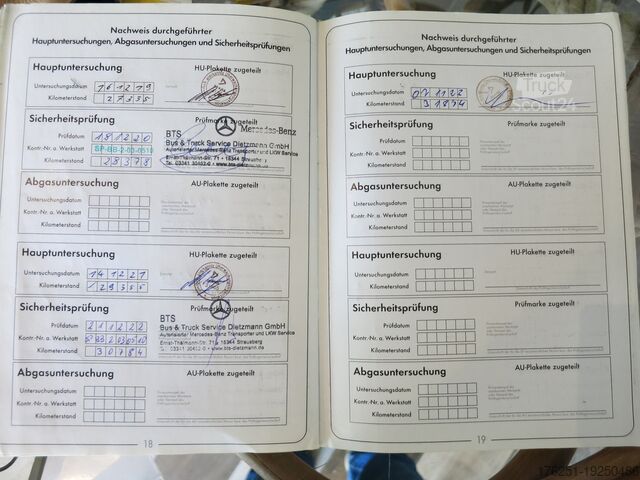 Nachweis durchgeführter
Hauptuntersuchungen, Abgasuntersuchungen und Sicherheitsprüfungen
Hauptuntersuchung HU-Plakette zugeteilt
Untersuchungsdatum 161219
Kilometerstand 27335
Sicherheitsprüfung Prüfmarke zugeteilt
Prüfdatum 181220
Kontr.-Nr. a. Werkstatt
Kilometerstand 28378
BTS Mercedes-Benz
Bus & Truck Service Dietzmann GmbH
Autorisierter Mercedes-Benz Transporter und LKW Service
Ernst-Thälmann-Str. 71 • 15344 Strausberg
Abgasuntersuchung AU-Plakette zugeteilt
Untersuchungsdatum
Kontr-Nr. a. Werkstatt
Kilometerstand
Hauptuntersuchung HU-Plakette zugeteilt
Untersuchungsdatum 141221
Kilometerstand 29355
Sicherheitsprüfung Prüfmarke zugeteilt
Prüfdatum 211222
Kontr.-Nr. a. Werkstatt
Kilometerstand 30784
BTS
Bus & Truck Service Dietzmann GmbH
Autorisierter Mercedes-Benz Transporter und LKW Service
Ernst-Thälmann-Str. 71 • 15344 Strausberg
Tel.: 03341 30452-0 • www.bts-dietzmann.de
Abgasuntersuchung AU-Plakette zugeteilt
Untersuchungsdatum
Kontr.-Nr. a. Werkstatt
Kilometerstand
18
Nachweis durchgeführter
Hauptuntersuchungen, Abgasuntersuchungen und Sicherheitsprüfungen
Hauptuntersuchung HU-Plakette zugeteilt
Untersuchungsdatum
Kilometerstand 31874
Truck
Scout24
Sicherheitsprüfung Prüfmarke zugeteilt
Prüfdatum
Kontr.-Nr. a. Werkstatt
Kilometerstand
Abgasuntersuchung AU-Plakette zugeteilt
Untersuchungsdatum
Kontr-Nr. a. Werkstatt
Kilometerstand
Hauptuntersuchung HU-Plakette zugeteilt
Untersuchungsdatum
Kilometerstand
Sicherheitsprüfung Prüfmarke zugeteilt
Prüfdatum
Kontr.-Nr. a. Werkstatt
Kilometerstand
Abgasuntersuchung AU-Plakette zugeteilt
Untersuchungsdatum
Kontr.-Nr. a. Werkstatt
Kilometerstand
19